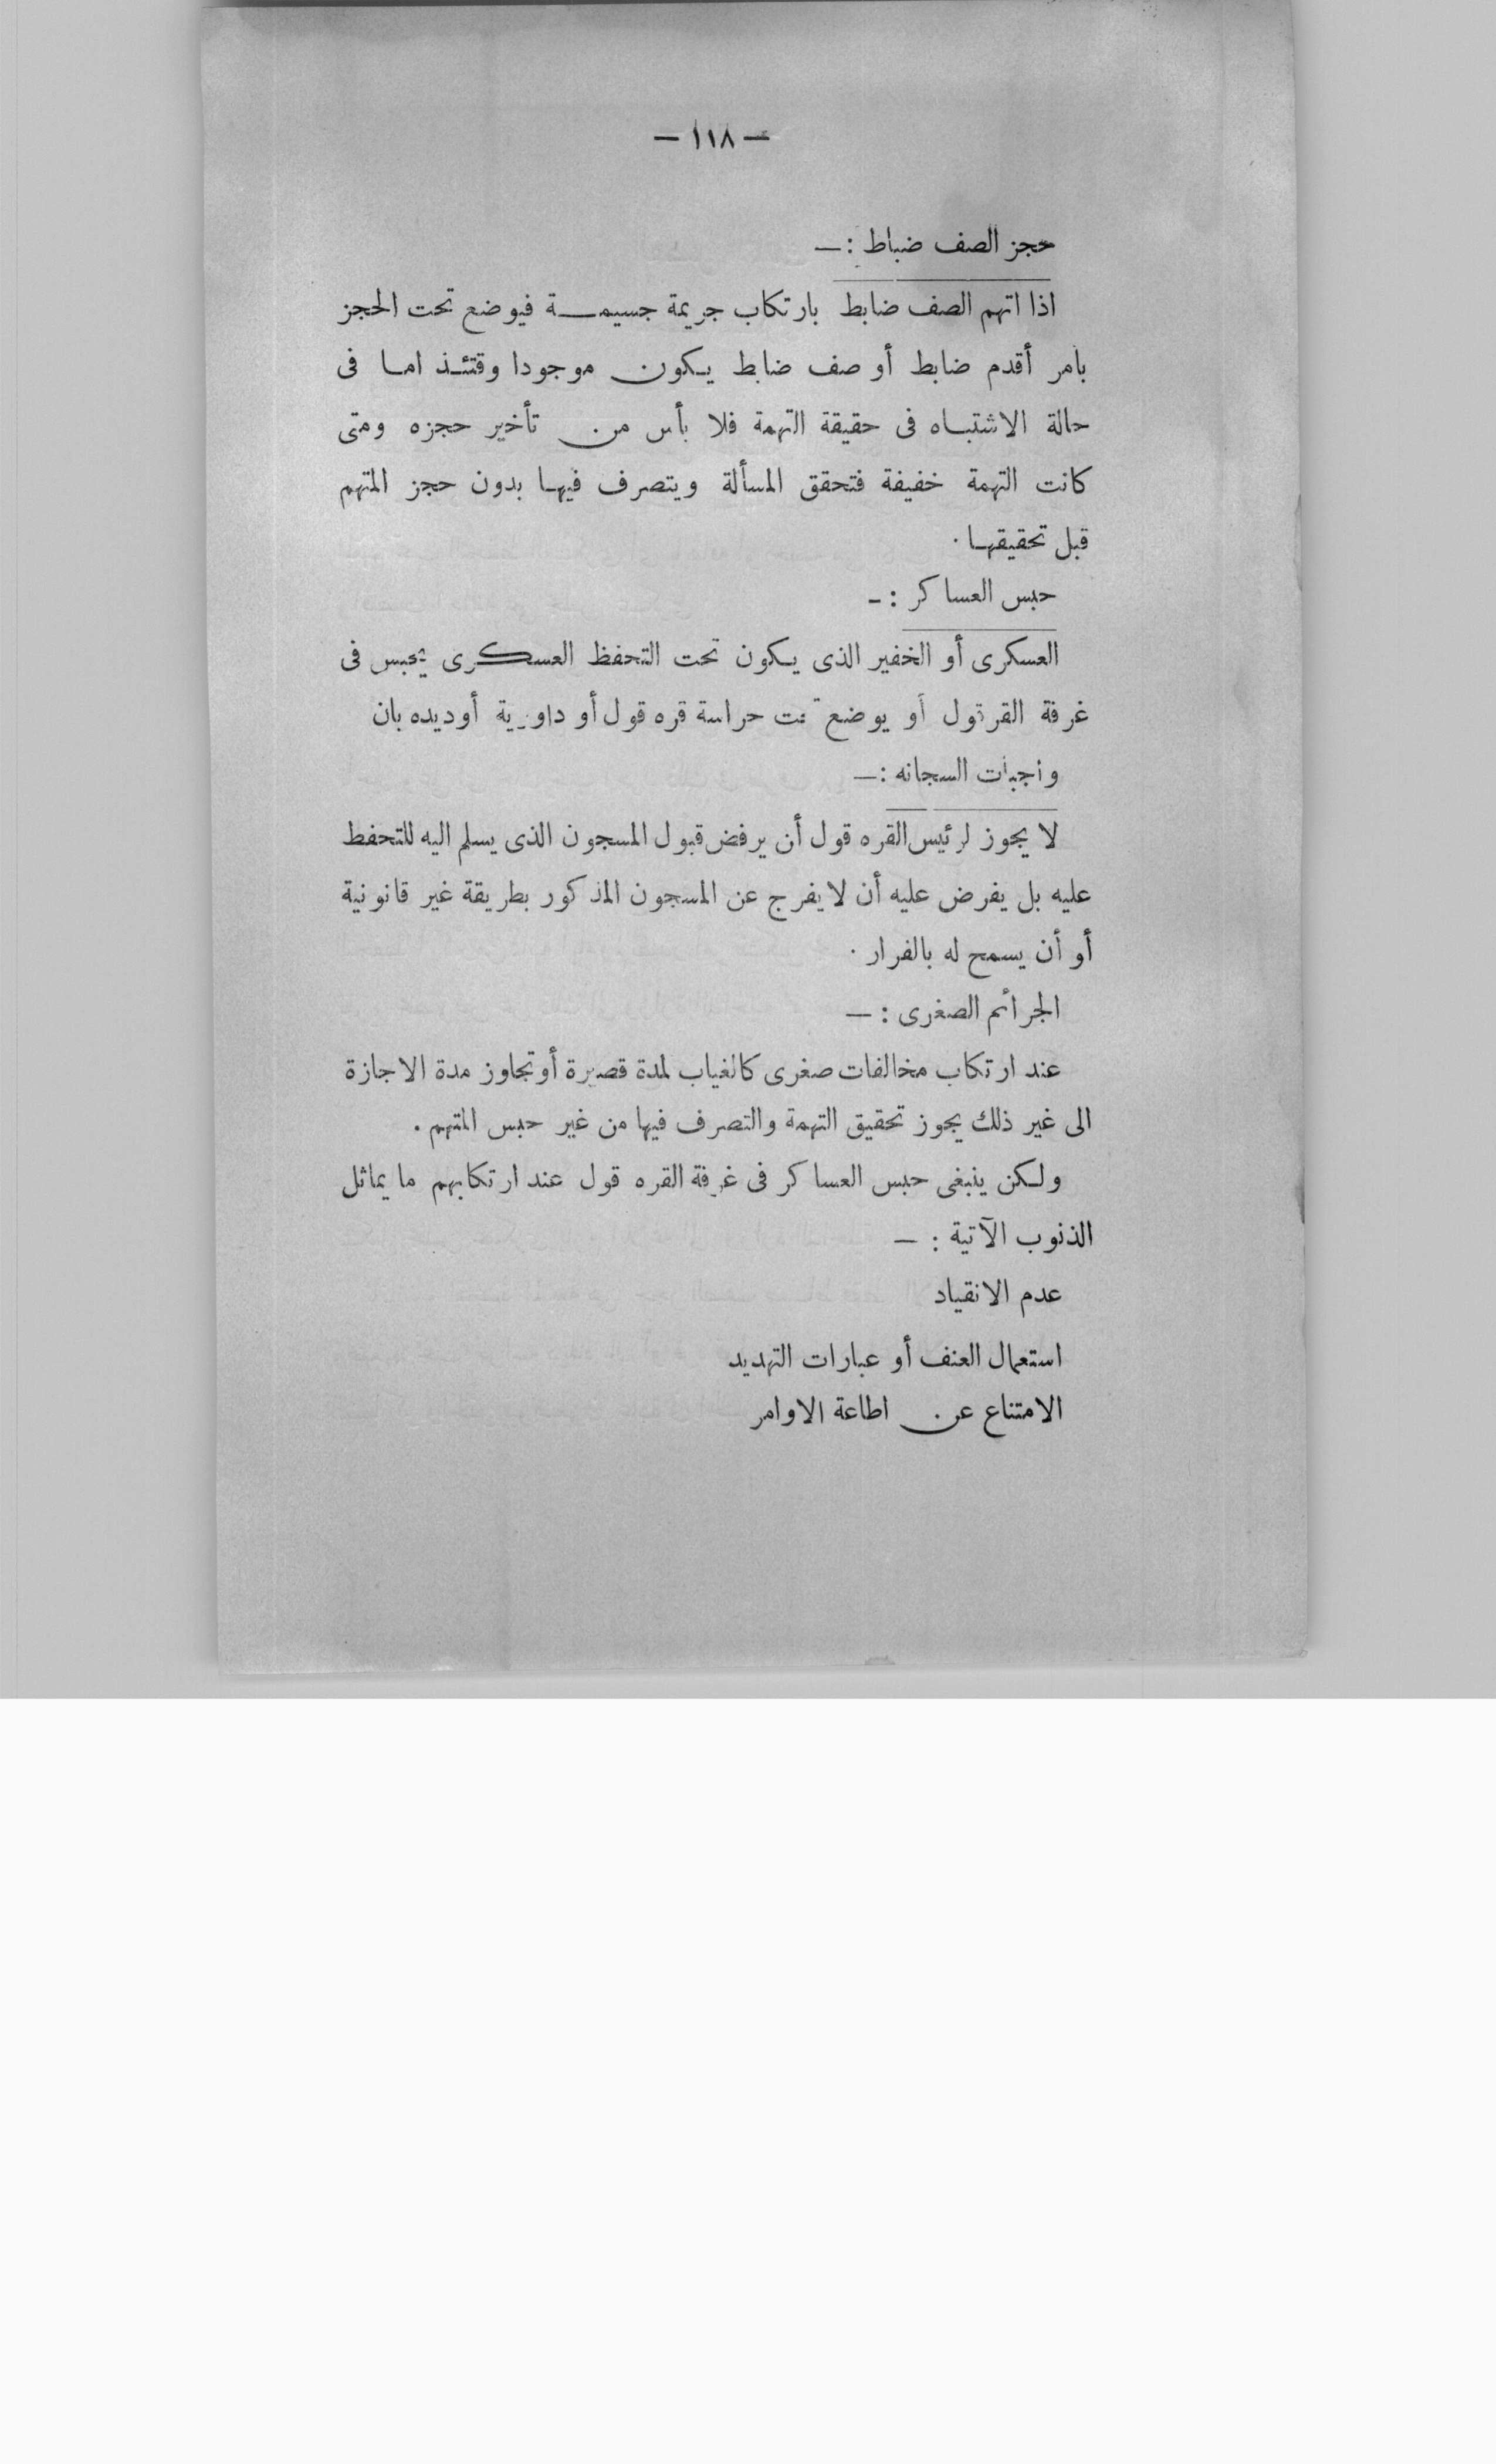 — ١١٨ —
حجز الصف ضباط : —
اذا اتهم الصف ضابط بارتكاب جريمة جسيمة فيوضع تحت الحجز
بأمر أقدم ضابط أو صف ضابط يكون موجودا وقتئذ اما فى
حالة الاشتباه فى حقيقة التهمة فلا بأس من تأخير حجزه ومتى
كانت التهمة خفيفة فتحقق المسألة ويتصرف فيها بدون حجز المتهم
قبل تحقيقها .
حبس العساكر : -
العسكرى أو الخفير الذى يكون تحت التحفظ العسكرى يحبس فى
غرفة القرقول أو يوضع تحت حراسة قره قول أو داورية أو ديده بان
واجبات السجانه : —
لا يجوز لرئيس القره قول أن يرفض قبول المسجون الذى يسلم اليه للتحفظ
عليه بل يفرض عليه أن لا يفرج عن المسجون المذكور بطريقة غير قانونية
أو أن يسمح له بالفرار .
الجرائم الصغرى : —
عند ارتكاب مخالفات صغرى كالغياب لمدة قصيرة أو تجاوز مدة الاجازة
الى غير ذلك يجوز تحقيق التهمة والتصرف فيها من غير حبس المتهم .
ولكن ينبغى حبس العساكر فى غرفة القره قول عند ارتكابهم ما يماثل
الذنوب الآتية : —
عدم الانقياد
استعمال العنف أو عبارات التهديد
الامتناع عن اطاعة الاوامر